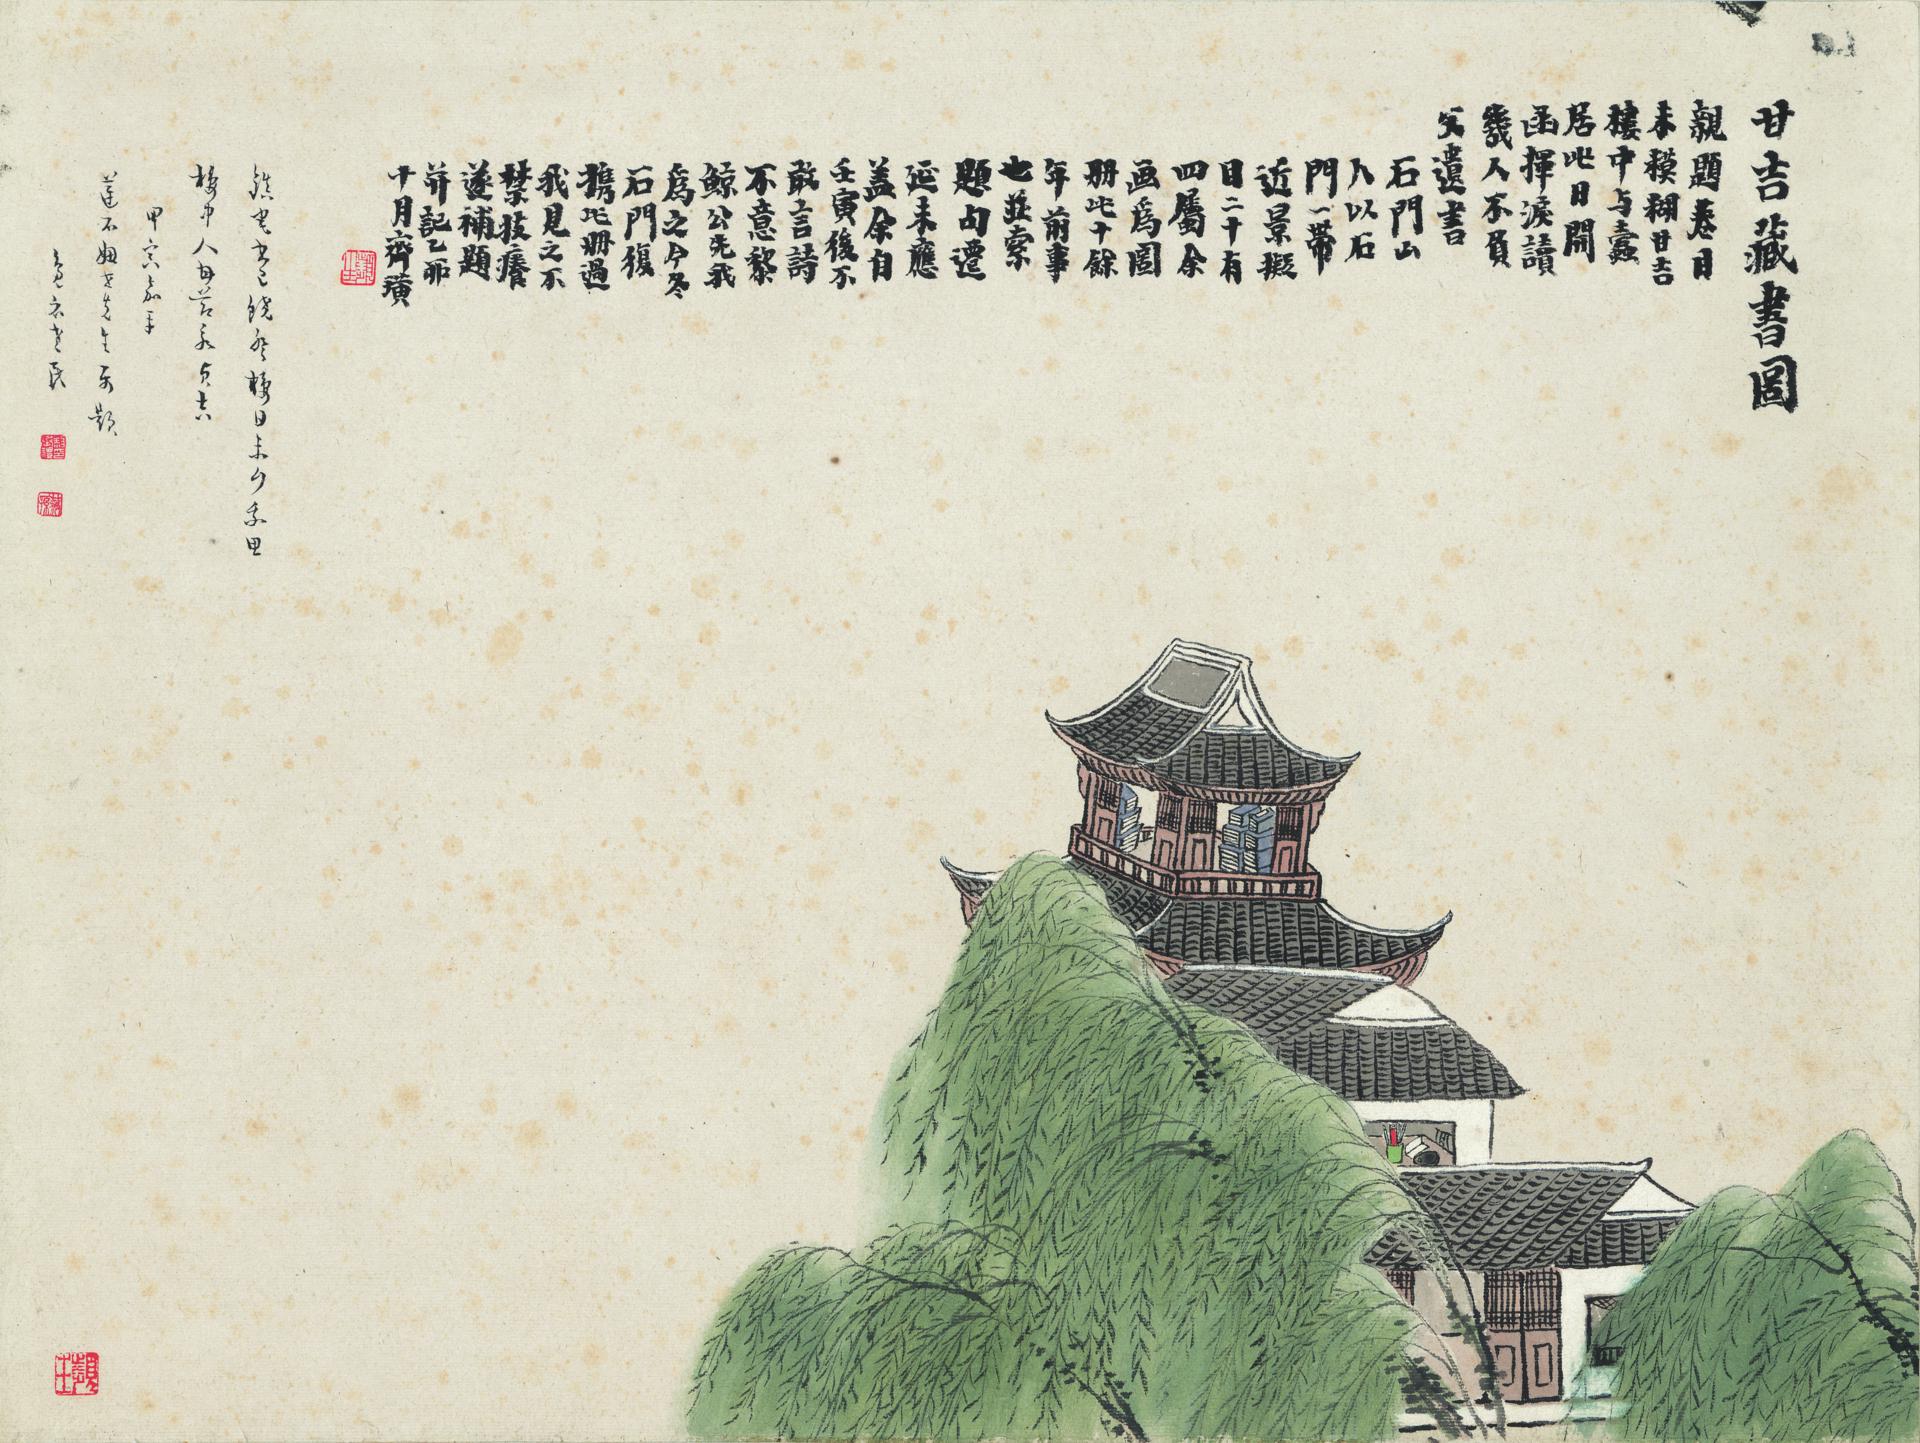 甘吉藏書圖
親題卷目
未模糊甘吉
樓中与蠹
居此日開
函揮淚讀
幾人不負
父遺書
石門山
人以石
門一帶
近景擬
目二十有
四屬余
画爲圖
册此十餘
年前事
也並索
題句遷
延未應
蓋余自
壬寅後不
敢言詩
不意黎
鯨公先我
爲之今冬
石門復
攜此册過
我見之不
禁技癢
遂補題
并記乙卯
十月齊璜
樓日未夕
樓中人
甲寅
老先生
題